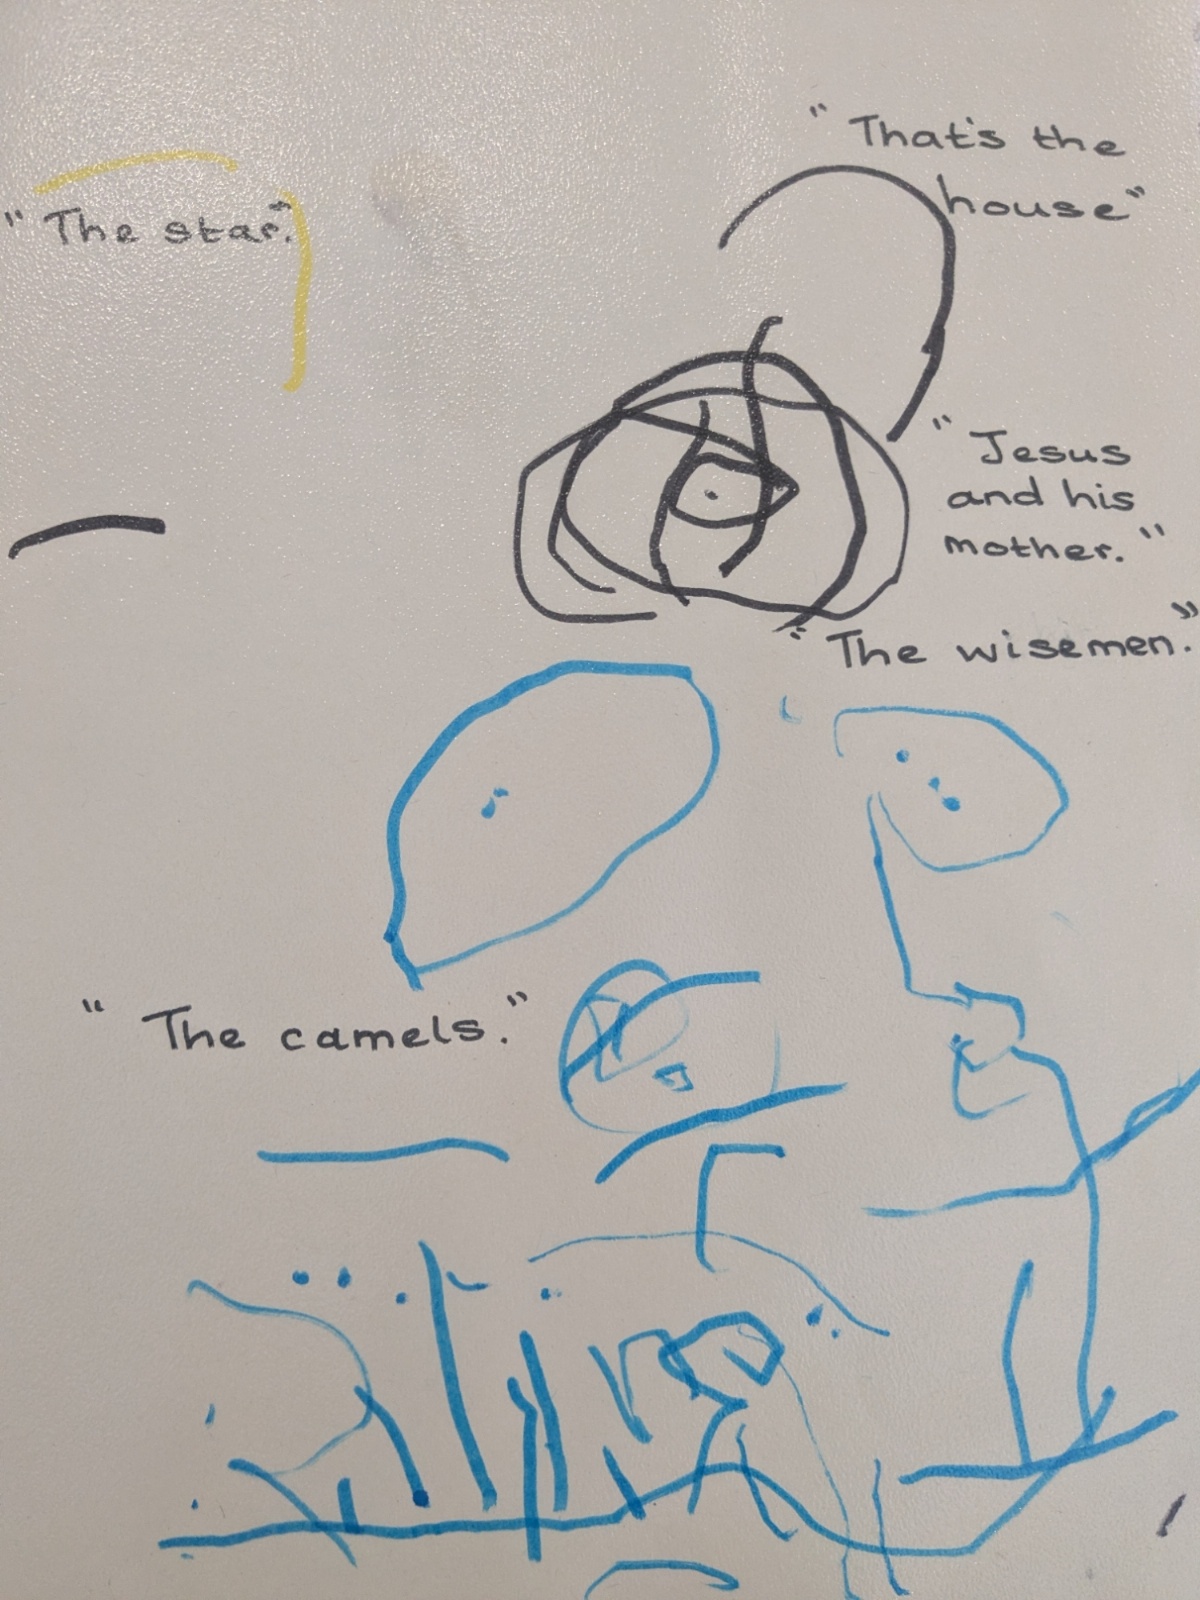 "That's the
house"
"The star."
"Jesus
and his
mother."
"The wisemen."
"The camels."